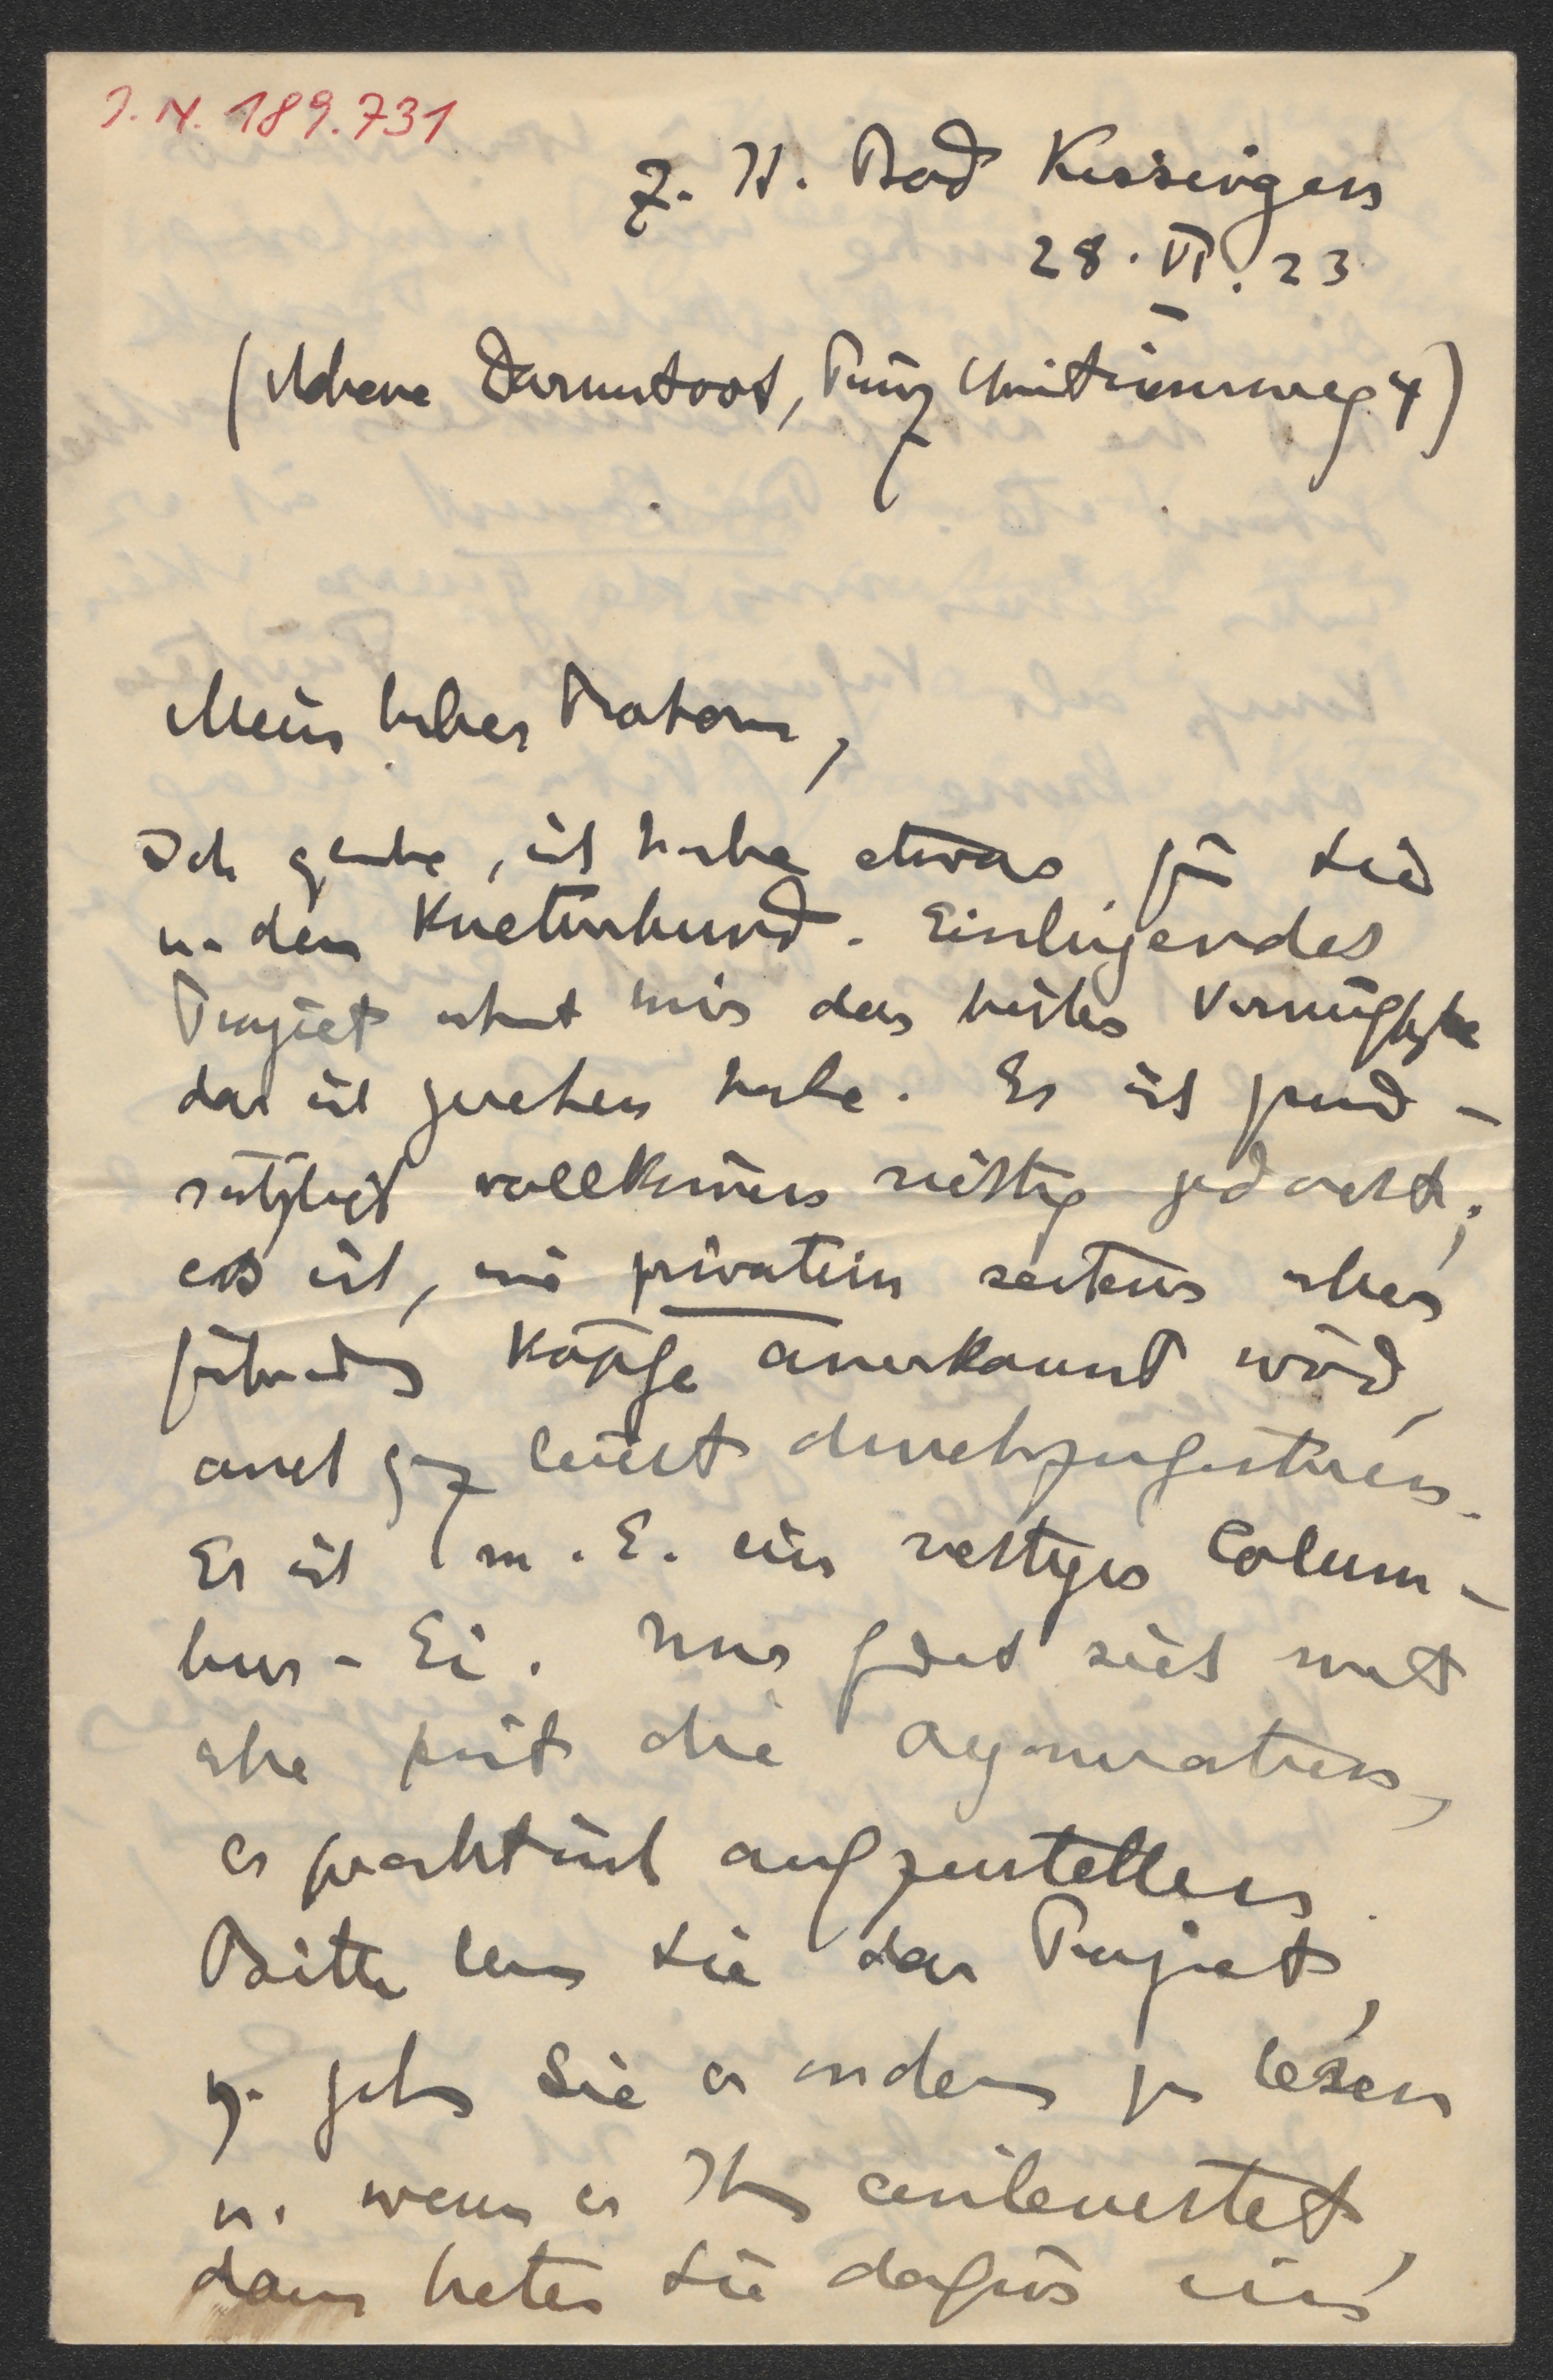 I. N. 189.731
z. Zt. Bad Kissingen
28. VI. 23
(Adresse Darmstadt, Prinz Christiansweg 4)
Mein lieber Rohan,
Ich glaube, ich habe etwas für Sie
u. den Kulturbund. Einliegendes
Project scheint mir das beste Vernünftigste
das ich gesehen habe. Es ist grund-
sätzlich vollkommen richtig gedacht;
es ist, wie privatim seitens aller
führenden Köpfe anerkannt wird,
auch ganz leicht durchzuführen.
Es ist m. E. ein richtiges Colum-
bus-Ei. Nur findet sich nicht
die Organisation,
es praktisch aufzustellen.
Bitte lesen Sie das Project,
u. geben Sie es andern zu lesen
u. wenn es Ihnen einleuchtet,
dann treten Sie dafür ein